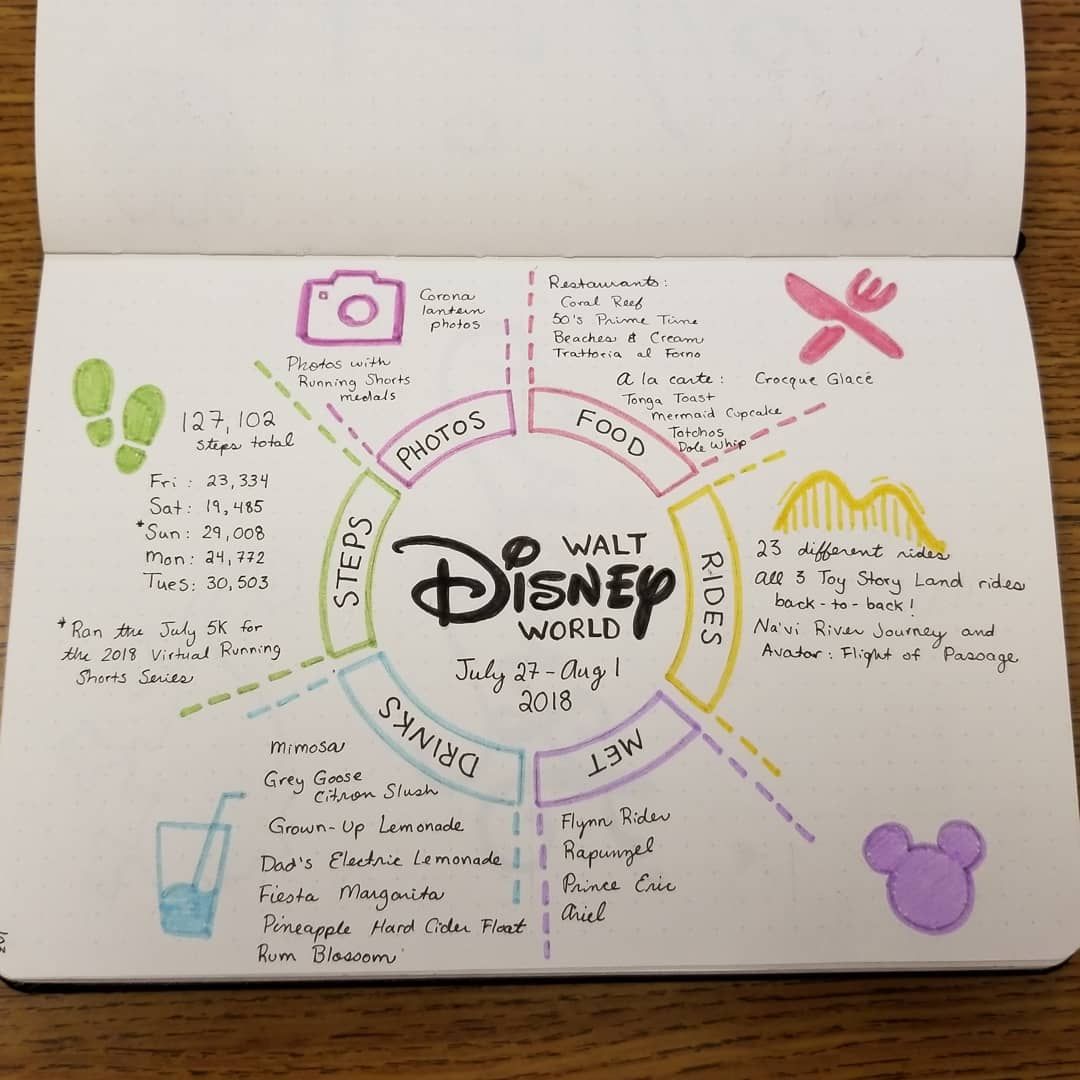 Corona
lantern
photos
Photos with
Running Shorts
medals
PHOTOS
Restaurants:
Coral Reef
50's Prime Time
Beaches & Cream
Trattoria al Forno
A la carte: Crocque Glacé
Tonga Toast
Mermaid Cupcake
Totchos
Dole Whip
FOOD
RIDES
23 different rides
All 3 Toy Story Land rides
back-to-back!
Na'vi River Journey and
Avatar: Flight of Passage
MET
Flynn Rider
Rapunzel
Prince Eric
Ariel
DRINKS
Mimosa
Grey Goose
Citron Slush
Grown-Up Lemonade
Dad's Electric Lemonade
Fiesta Margarita
Pineapple Hard Cider Float
Rum Blossom
STEPS
127,102
steps total
Fri: 23,334
Sat: 19,485
*Sun: 29,008
Mon: 24,772
Tues: 30,503
*Ran the July 5K for
the 2018 Virtual Running
Shorts Series
WALT
DISNEY
WORLD
July 27-Aug 1
2018